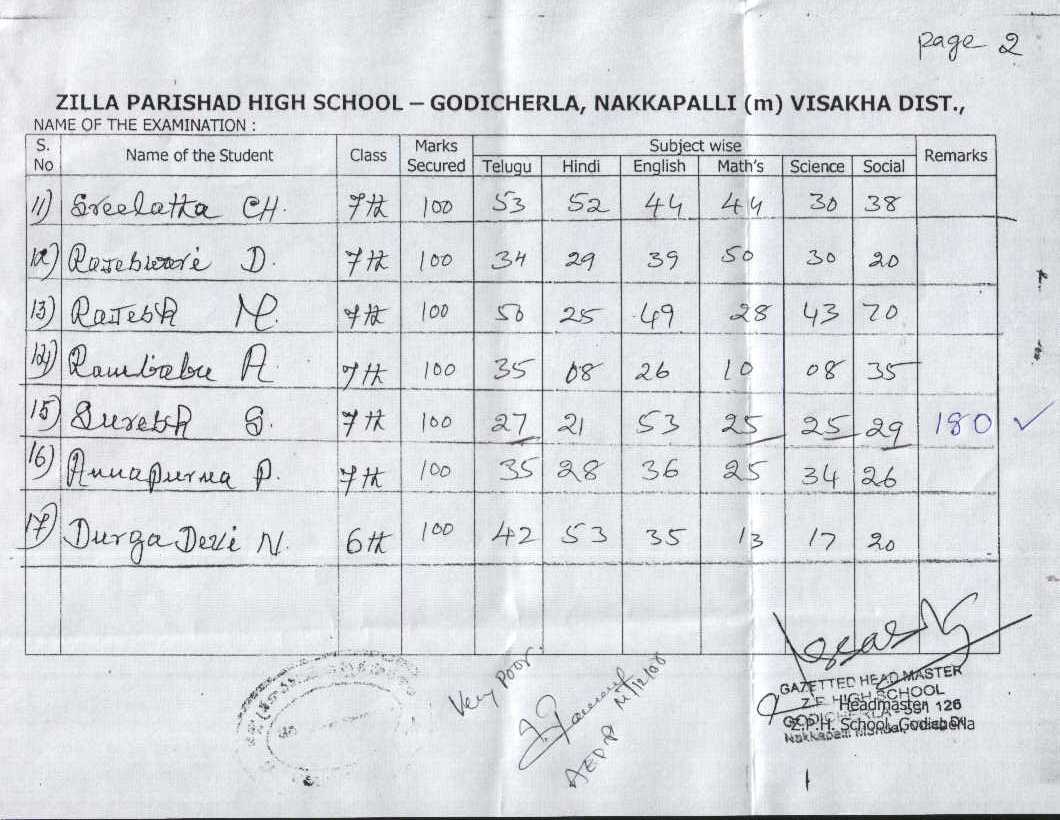 Page 2
ZILLA PARISHAD HIGH SCHOOL – GODICHERLA, NAKKAPALLI (m) VISAKHA DIST.,
NAME OF THE EXAMINATION :
S. No Name of the Student Class Marks Secured Subject wise Remarks
Telugu Hindi English Math's Science Social
11) Sreelatha CH. 7th 100 53 52 44 44 30 38
12) Rajeswari D. 7th 100 34 29 39 50 30 20
13) Rajesh M. 7th 100 50 25 49 28 43 20
14) Rambabu A 7th 100 35 08 26 10 08 35
15) Suresh S. 7th 100 27 21 53 25 25 29 180 ✓
16) Annapurna P. 7th 100 35 28 36 25 34 26
17) Durga Devi N. 6th 100 42 53 35 13 17 20
Very Poor.
AEDP
GAZETTED HEAD MASTER
Z.P. HIGH SCHOOL
Headmaster
GODICHERLA - 531 126
Z.P.H. School, Godicherla
Nakkapalli Mandal,